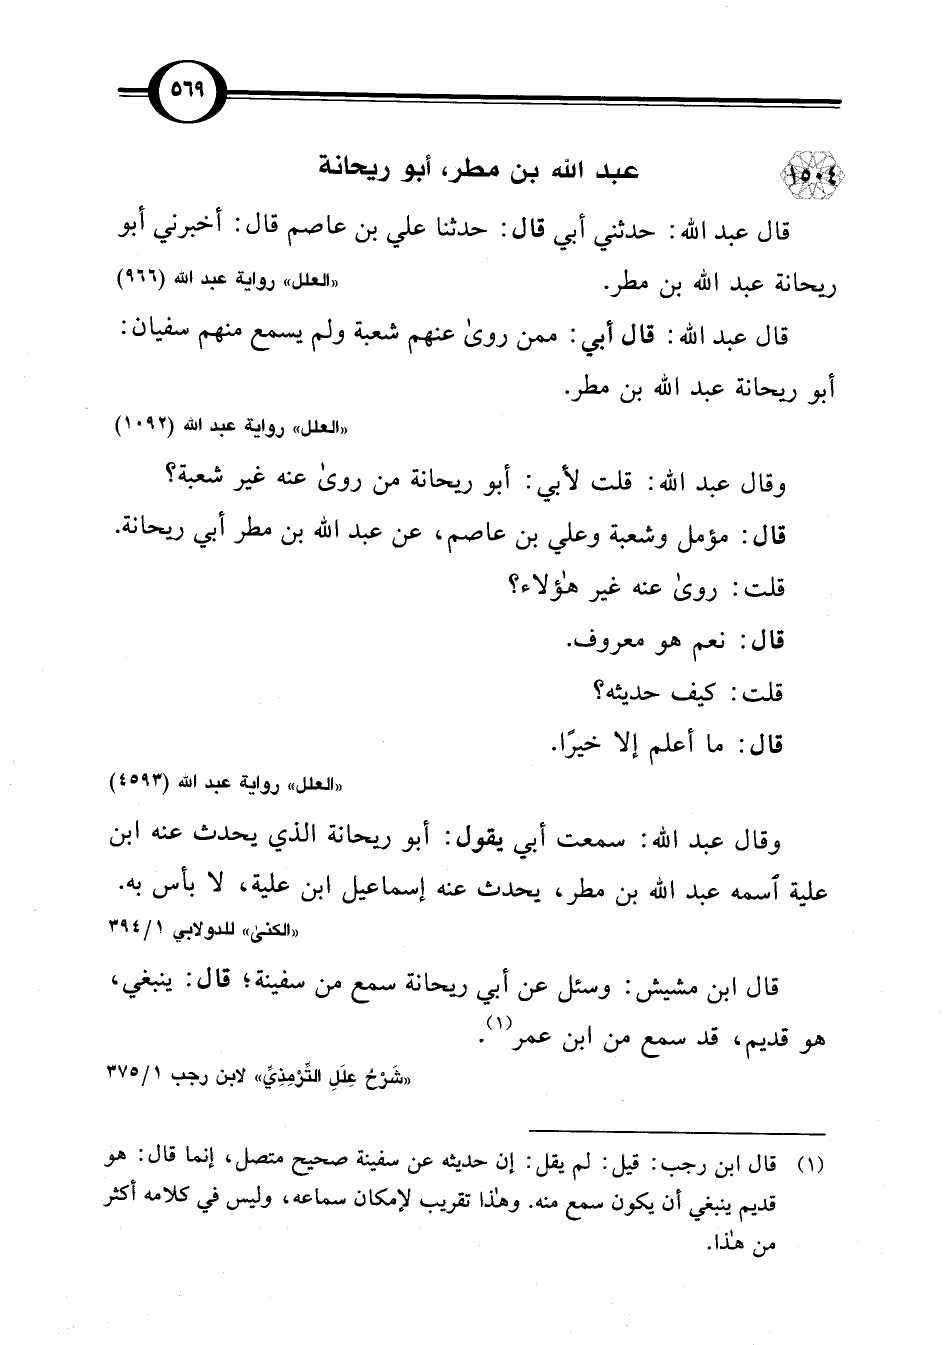 ٥٦٩
١٥٠٤ عبد الله بن مطر، أبو ريحانة
قال عبد الله: حدثني أبي قال: حدثنا علي بن عاصم قال: أخبرني أبو
ريحانة عبد الله بن مطر. «العلل» رواية عبد الله (٩٦٦)
قال عبد الله: قال أبي: ممن روىٰ عنهم شعبة ولم يسمع منهم سفيان:
أبو ريحانة عبد الله بن مطر.
«العلل» رواية عبد الله (١٠٩٢)
وقال عبد الله: قلت لأبي: أبو ريحانة من روىٰ عنه غير شعبة؟
قال: مؤمل وشعبة وعلي بن عاصم، عن عبد الله بن مطر أبي ريحانة.
قلت: روىٰ عنه غير هؤلاء؟
قال: نعم هو معروف.
قلت: كيف حديثه؟
قال: ما أعلم إلا خيرًا.
«العلل» رواية عبد الله (٤٥٩٣)
وقال عبد الله: سمعت أبي يقول: أبو ريحانة الذي يحدث عنه ابن
علية ٱسمه عبد الله بن مطر، يحدث عنه إسماعيل ابن علية، لا بأس به.
«الكنىٰ» للدولابي ١/ ٣٩٤
قال ابن مشيش: وسئل عن أبي ريحانة سمع من سفينة؛ قال: ينبغي،
هو قديم، قد سمع من ابن عمر(١).
«شَرْحُ عِلَلِ التِّرْمِذِيِّ» لابن رجب ١/ ٣٧٥
(١) قال ابن رجب: قيل: لم يقل: إن حديثه عن سفينة صحيح متصل، إنما قال: هو
قديم ينبغي أن يكون سمع منه. وهٰذا تقريب لإمكان سماعه، وليس في كلامه أكثر
من هٰذا.